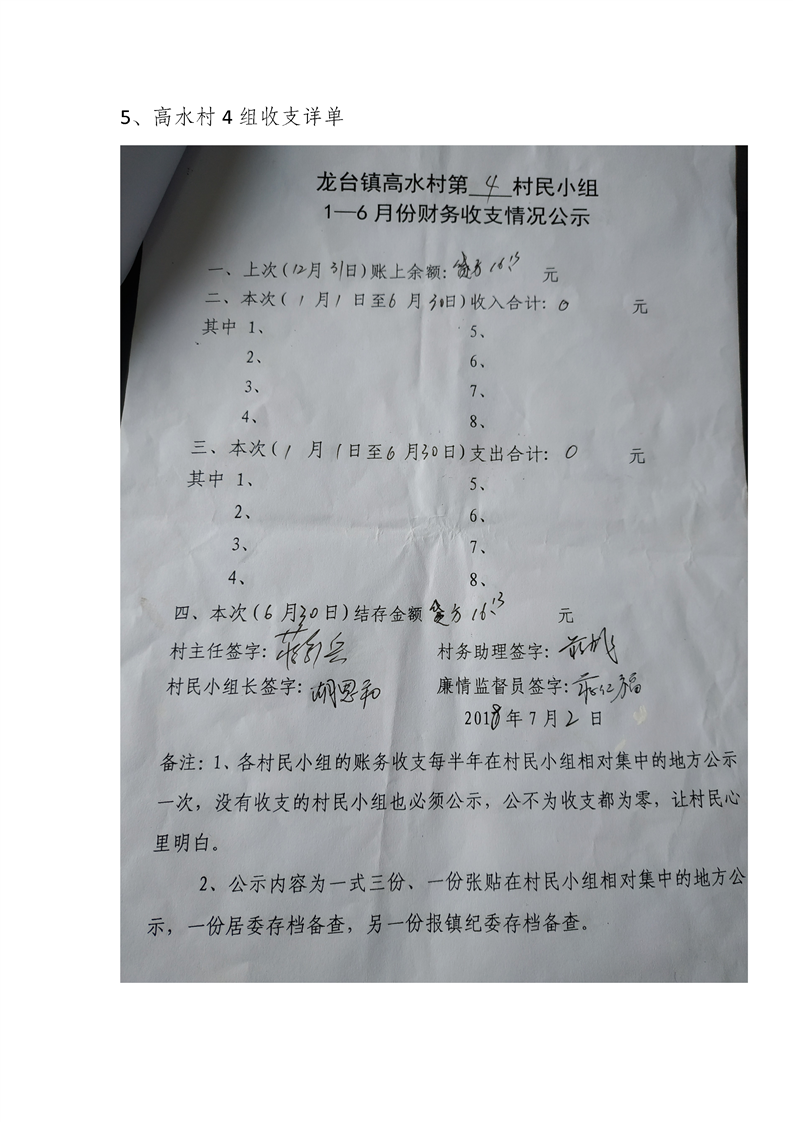 5、高水村 4 组收支详单
龙台镇高水村第 4 村民小组
1—6 月份财务收支情况公示
一、上次(12月31日)账上余额: 贷方 16.13 元
二、本次( 1 月 1 日至 6 月 30日)收入合计: 0 元
其中 1、 5、
2、 6、
3、 7、
4、 8、
三、本次( 1 月 1日至 6 月30日)支出合计: 0 元
其中 1、 5、
2、 6、
3、 7、
4、 8、
四、本次( 6 月30 日)结存金额 贷方 16.13 元
村主任签字: 村务助理签字:
村民小组长签字: 廉情监督员签字:
2018 年 7 月 2 日
备注: 1、各村民小组的账务收支每半年在村民小组相对集中的地方公示
一次，没有收支的村民小组也必须公示，公不为收支都为零，让村民心
里明白。
2、公示内容为一式三份、一份张贴在村民小组相对集中的地方公
示，一份居委存档备查，另一份报镇纪委存档备查。